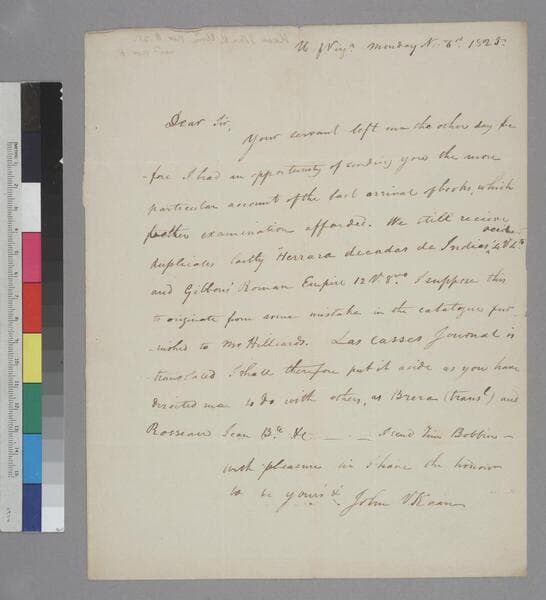 U. of Virga. Monday N. 8th. 1825.
Dear Sir,
Your servant left me the other day be
-fore I had an opportunity of sending you the more
particular account of the last arrival of books, which
further examination afforded. We still recieve
duplicates lastly Herrara decadas de Indias, 4 V 4to
and Gibbons' Roman Empire 12 V 8vo I suppose this
to originate from some mistake in the catalogue fur
-nished to Mr Hilliards. Las Casses Journal is
translated I shall therefore put it aside as you have
directed me to do with others, as Brera (transl) and
Rosseau Jean Bte &c — . — I send Tim Bobbin —
with pleasure in I have the honour
to be yours &
John V Kean